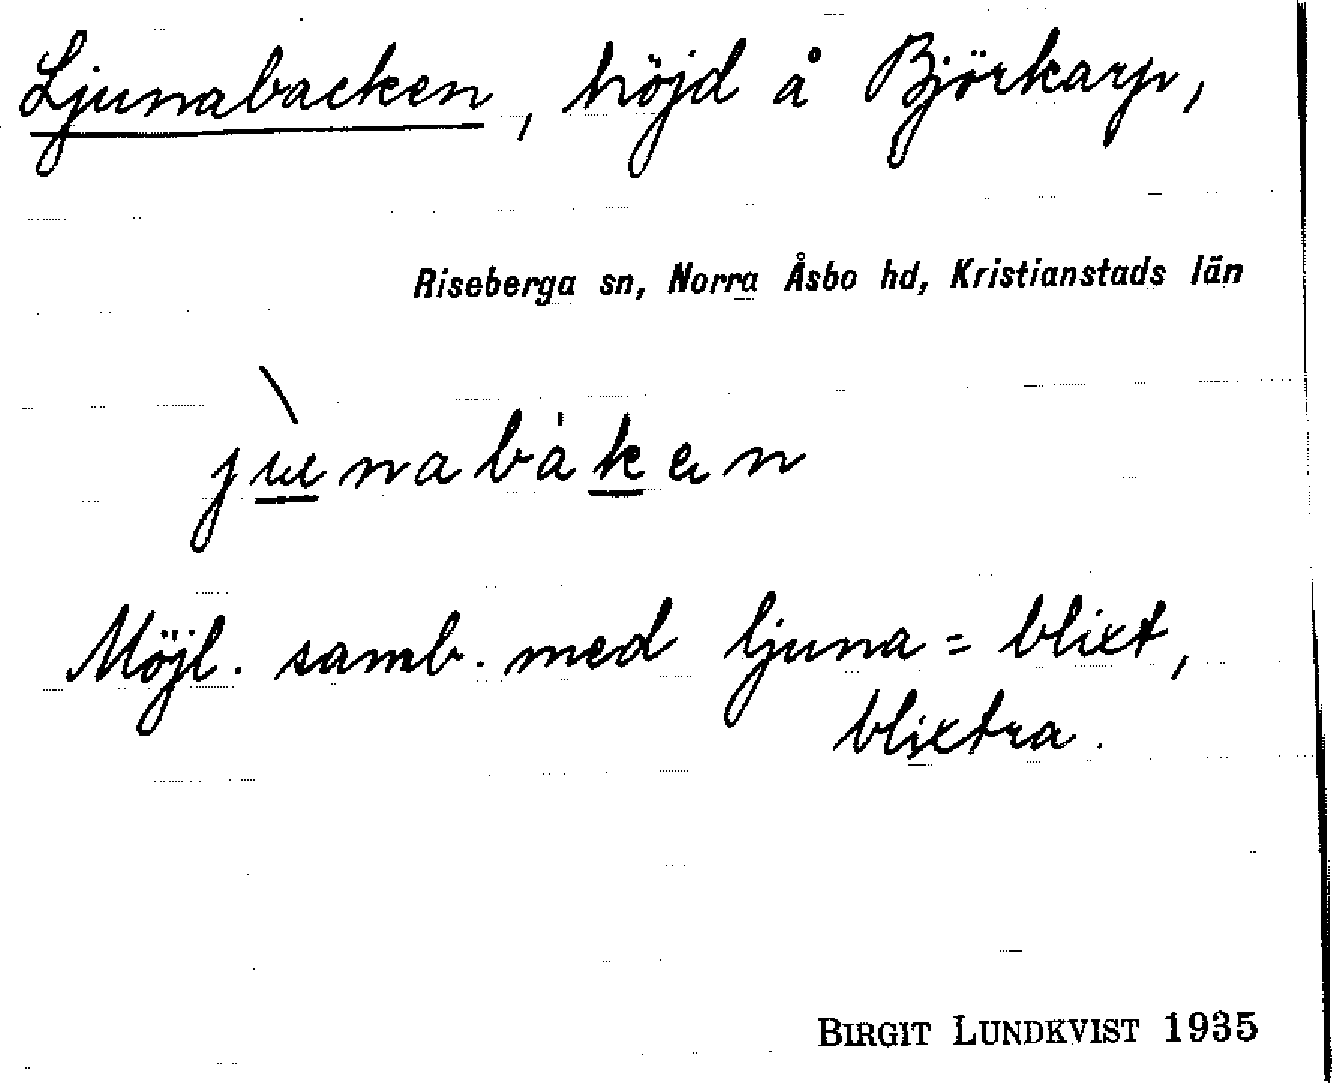 Ljunabacken, höjd å Björkarp,
Riseberga sn, Norra Åsbo hd, Kristianstads län
jùnabákən
Möjl. samb. med ljuna = blixt,
blixtra.
BIRGIT LUNDKVIST 1935